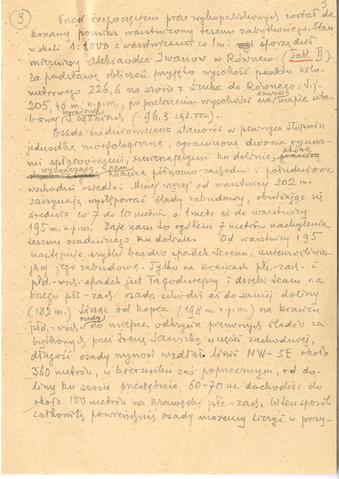 3
Przed rozpoczęciem prac wykopaliskowych został do-
konany pomiar warstwicowy terenu zabytkowego. Plan
w skali 1:1000 z warstwicami co 1 m. sporządził
mierniczy Aleksander Iwanow w Równem. (Tabl. II).
Za podstawę obliczeń przyjęto wysokość punktu kilo-
metrowego 226,6 na szosie z Łucka do Równego, t.j.
205,46 m. n.p.m., po przeliczeniu wysokości na mapie
(96.3 saż. ros.)
Osada średniowieczna stanowi w pewnym stopniu
jednostkę morfologiczną, ograniczoną dwoma
zmierzającymi ku dolinie,
krańce północno-zachodni i południowo
wschodni osiedla. Mniej więcej od warstwicy 202 m.
zaczynają występować ślady zabudowy, obniżając się
średnio co 7 do 10 metrów o 1 metr aż do warstwicy
195 m. n.p.m. Daje nam to ogółem 7 metrów nachylenia
terenu osadniczego ku dolinie. Od warstwicy 195
następuje szybki bardzo spadek terenu, uniemożliwia-
jący jego zabudowę. Tylko na krańcach płc.-zach. i
płd.-wsch. spadek jest łagodniejszy i dzięki temu na
płc.-zach. osada schodzi aż do samej doliny
(182 m.) Licząc od kopca (198 m. n.p.m.) na krańcu
płd.-wsch. osady do miejsca odkrycia pierwszych śladów za-
bytkowych przez Irenę Sawicką w części zachodniej,
długość osady wynosi wzdłuż linii NW-SE około
360 metrów, w kierunku zaś poprzecznym, od do-
liny ku szosie przeciętnie 60-70 m. dochodząc do
około 100 metrów na krawędzi płc.-zach. W ten sposób
całkowitą powierzchnię osady możemy liczyć w przy-